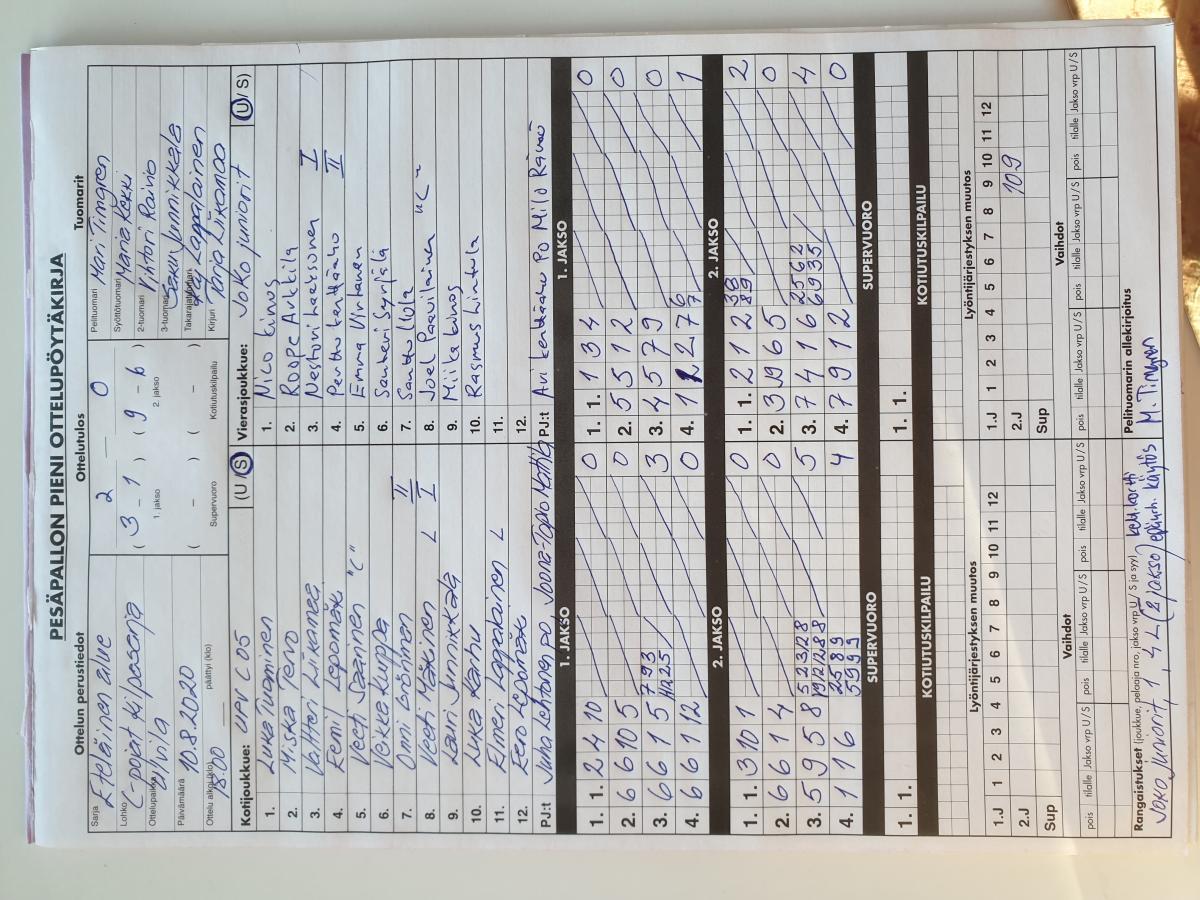 PESÄPALLON PIENI OTTELUPÖYTÄKIRJA
Ottelun perustiedot
Sarja Eteläinen alue
Lohko C-pojat kilpasarja
Ottelupaikka
Päivämäärä 10.8.2020
Ottelu alkoi (klo) 18.00 päättyi (klo)
Ottelutulos
2 — 0
( 3 - 1 ) ( 9 - 6 )
1. jakso 2. jakso
( - ) ( - )
Supervuoro Kotiutuskilpailu
Tuomarit
Pelituomari Mari Timgren
Syöttötuomari Maria Kekki
2-tuomari Vihtori Raivio
3-tuomari Eeku Junnikkala
Takarajatuomari Lappalainen
Kirjuri Tanja Liikamaa
Kotijoukkue: UPV C05 (U / S)
1. Luka Tuominen
2. Miska Tervo
3. Valtteri Liikamaa
4. Eemil Lepomäki
5. Veeti Saarinen "C"
6. Veikka Kuppa
7. Onni Gröhnen II
8. Veeti Mäkinen L I
9. Lauri Junnikkala
10. Luka Karhu
11. Elmeri Lappalainen L
12. Eero Lepomäki
PJ:t Juha Lehtonen PO Joona-Tapio Mattila
Vierasjoukkue: JoKo juniorit (U / S)
1. Nico Kinnos
2. Roope Arkkila
3. Nestori Isaksonen I
4. Perttu Kenttäaho II
5. Emma Virtanen
6. Santeri Syrjälä
7. Santtu Ulla
8. Joel Paavilainen "C"
9. Miika Kinnos
10. Rasmus Lintula
11.
12.
PJ:t Ari Kenttäaho PO Milo Rämö
1. JAKSO
1. 1. 2 4 10 0
2. 6 6 10 5 0
3. 6 6 1 5 7 9 3 3
4. 6 6 1 12 0
1. JAKSO
1. 1. 1 3 4 0
2. 5 5 1 2 0
3. 4 5 7 9 0
4. 1 1 2 7 7 6 1
2. JAKSO
1. 1. 3 10 1 0
2. 6 6 1 4 0
3. 5 9 5 8 5
4. 1 1 6 2 5 8 9 5 9 9 9 4
2. JAKSO
1. 1. 2 1 2 2
2. 3 9 6 5 0
3. 7 4 1 6 2 5 6 2 6 9 3 5 4
4. 7 9 1 2 0
SUPERVUORO
1. 1.
SUPERVUORO
1. 1.
KOTIUTUSKILPAILU
KOTIUTUSKILPAILU
Lyöntijärjestyksen muutos
1 2 3 4 5 6 7 8 9 10 11 12
1.J
2.J
Sup
Lyöntijärjestyksen muutos
1 2 3 4 5 6 7 8 9 10 11 12
1.J
2.J 10 9
Sup
Vaihdot
pois tilalle Jakso vrp U / S pois tilalle Jakso vrp U / S pois tilalle Jakso vrp U / S
Vaihdot
pois tilalle Jakso vrp U / S pois tilalle Jakso vrp U / S pois tilalle Jakso vrp U / S
Rangaistukset (joukkue, pelaaja nro, jakso vrp U / S ja syy)
JoKo Juniorit, 1, 4 L (2 jakso) kelt.kortti epäurh. käytös
Pelituomarin allekirjoitus
M. Timgren